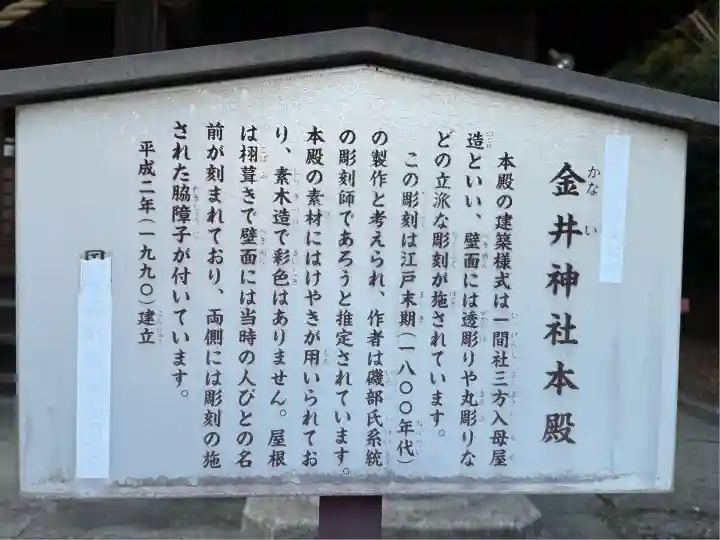 金井神社本殿
本殿の建築様式は一間社三方入母屋
造といい、壁面には透彫りや丸彫りな
どの立派な彫刻が施されています。
この彫刻は江戸末期(一八〇〇年代)
の製作と考えられ、作者は磯部氏系統
の彫刻師であろうと推定されています。
本殿の素材にはけやきが用いられてお
り、素木造で彩色はありません。屋根
は栩葺きで壁面には当時の人びとの名
前が刻まれており、両側には彫刻の施
された脇障子が付いています。
平成二年(一九九〇)建立